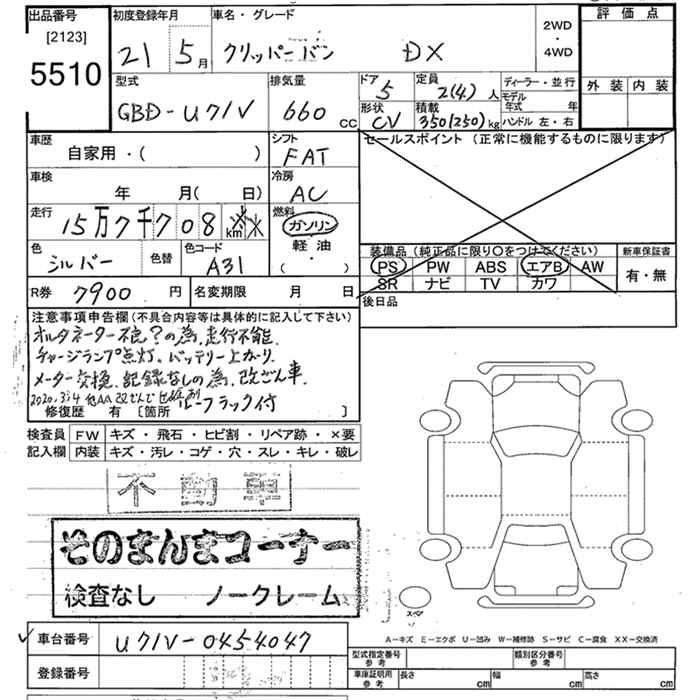 出品番号
[2123]
5510
初度登録年月
21 5月
車名・グレード
クリッパーバン DX
2WD
・
4WD
評価点
外装 内装
型式
GBD-U71V
排気量
660 CC
ドア
5
定員
2(4)人
ディーラー・並行
形状
CV
積載
350(250)kg
モデル年式 年
ハンドル 左・右
車歴
自家用・( )
シフト
FAT
セールスポイント (正常に機能するものに限ります)
車検
年 月( 日)
冷房
AC
走行
15万7千708 km
燃料
ガソリン
軽油
( ・ )
色
シルバー
色替
色コード
A31
装備品 (純正品に限り〇をつけてください)
PS PW ABS エアB AW
SR ナビ TV カワ
新車保証書
有・無
R券
7900 円
名変期限 月 日
後日品
注意事項申告欄 (不具合内容等は具体的に記入して下さい)
オルタネーター不良?の為、走行不能、
チャージランプ点灯、バッテリー上がり、
メーター交換、記録なしの為、改ざん車、
2020.3/4 他AA 改ざんで
ルーフラック付
修復歴 有 [箇所 ]
検査員
記入欄
FW キズ・飛石・ヒビ割・リペア跡・×要
内装 キズ・汚レ・コゲ・穴・スレ・キレ・破レ
不動車
そのまんまコーナー
検査なし ノークレーム
スペア
A−キズ E−エクボ U−凹み W−補修跡 S−サビ C−腐食 XX−交換済
車台番号
U71V-0454047
登録番号
型式指定番号
参考
類別区分番号
参考
車庫証明用
参考
長さ cm 幅 cm 高さ cm